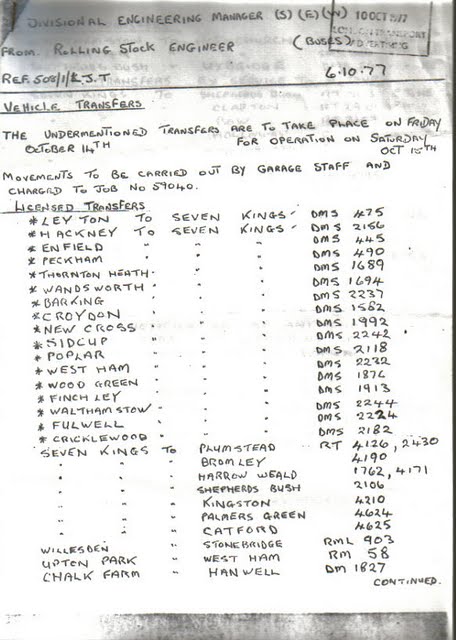 DIVISIONAL ENGINEERING MANAGER (S) (E) (W) 10 OCT 1977
LONDON TRANSPORT
FROM ROLLING STOCK ENGINEER (BUSES) ADVERTISING
REF. 508/1/R.J.T. 6.10.77
VEHICLE TRANSFERS
THE UNDERMENTIONED TRANSFERS ARE TO TAKE PLACE ON FRIDAY
OCTOBER 14TH FOR OPERATION ON SATURDAY
OCT 15TH
MOVEMENTS TO BE CARRIED OUT BY GARAGE STAFF AND
CHARGED TO JOB No 59040.
LICENSED TRANSFERS
* LEYTON TO SEVEN KINGS DMS 475
* HACKNEY TO SEVEN KINGS DMS 2156
* ENFIELD " " DMS 445
* PECKHAM " " DMS 490
* THORNTON HEATH " " DMS 1689
* WANDSWORTH " " DMS 1694
* BARKING " " DMS 2237
* CROYDON " " DMS 1582
* NEW CROSS " " DMS 1992
* SIDCUP " " DMS 2242
* POPLAR " " DMS 2118
* WEST HAM " " DMS 2232
* WOOD GREEN " " DMS 1876
* FINCHLEY " " DMS 1913
* WALTHAMSTOW " " DMS 2244
* FULWELL " " DMS 2224
* CRICKLEWOOD " " DMS 2182
SEVEN KINGS TO PLUMSTEAD RT 4126, 2430
" " BROMLEY 4190
" " HARROW WEALD 1762, 4171
" " SHEPHERDS BUSH 2106
" " KINGSTON 4210
" " PALMERS GREEN 4624
" " CATFORD 4625
WILLESDEN " STONEBRIDGE RML 903
UPTON PARK " WEST HAM RM 58
CHALK FARM " HANWELL DM 1827
CONTINUED.